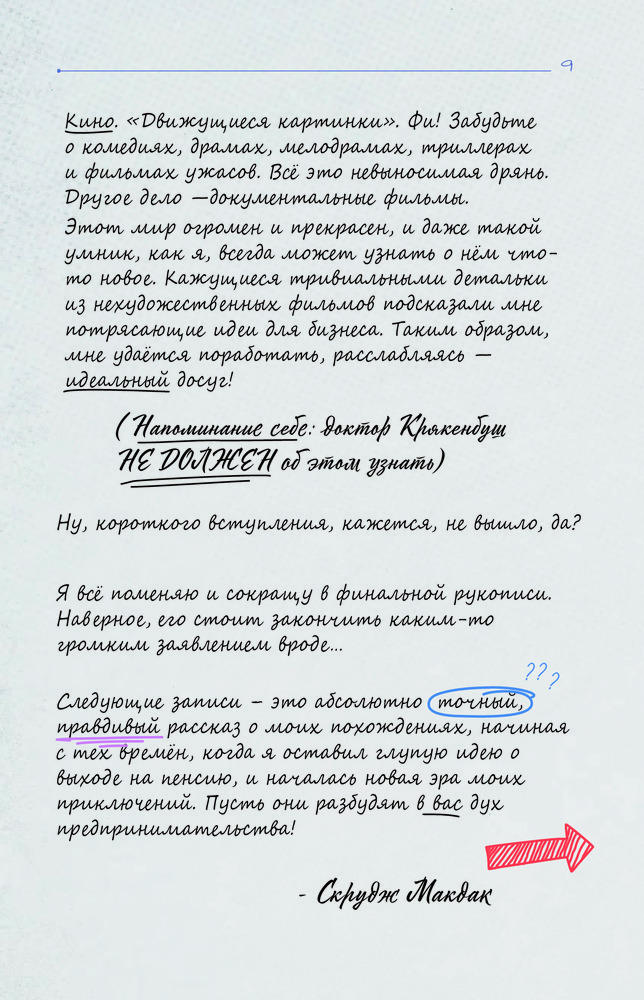 9
Кино. «Движущиеся картинки». Фи! Забудьте
о комедиях, драмах, мелодрамах, триллерах
и фильмах ужасов. Всё это невыносимая дрянь.
Другое дело —документальные фильмы.
Этот мир огромен и прекрасен, и даже такой
умник, как я, всегда может узнать о нём что-
то новое. Кажущиеся тривиальными детальки
из нехудожественных фильмов подсказали мне
потрясающие идеи для бизнеса. Таким образом,
мне удаётся поработать, расслабляясь —
идеальный досуг!
(Напоминание себе: доктор Крякенбуш
НЕ ДОЛЖЕН об этом узнать)
Ну, короткого вступления, кажется, не вышло, да?
Я всё поменяю и сокращу в финальной рукописи.
Наверное, его стоит закончить каким-то
громким заявлением вроде...
???
Следующие записи – это абсолютно точный,
правдивый рассказ о моих похождениях, начиная
с тех времён, когда я оставил глупую идею о
выходе на пенсию, и началась новая эра моих
приключений. Пусть они разбудят в вас дух
предпринимательства!
- Скрудж Макдак